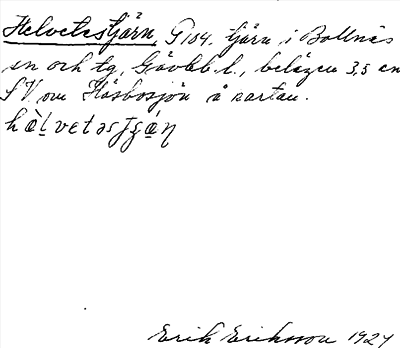 Helvetestjärn, G 104. tjärn i Bollnäs
sn och tg, Gävleb. l., belägen 3,5 cm
SV om Håsbosjön å kartan.
Erik Eriksson 1924